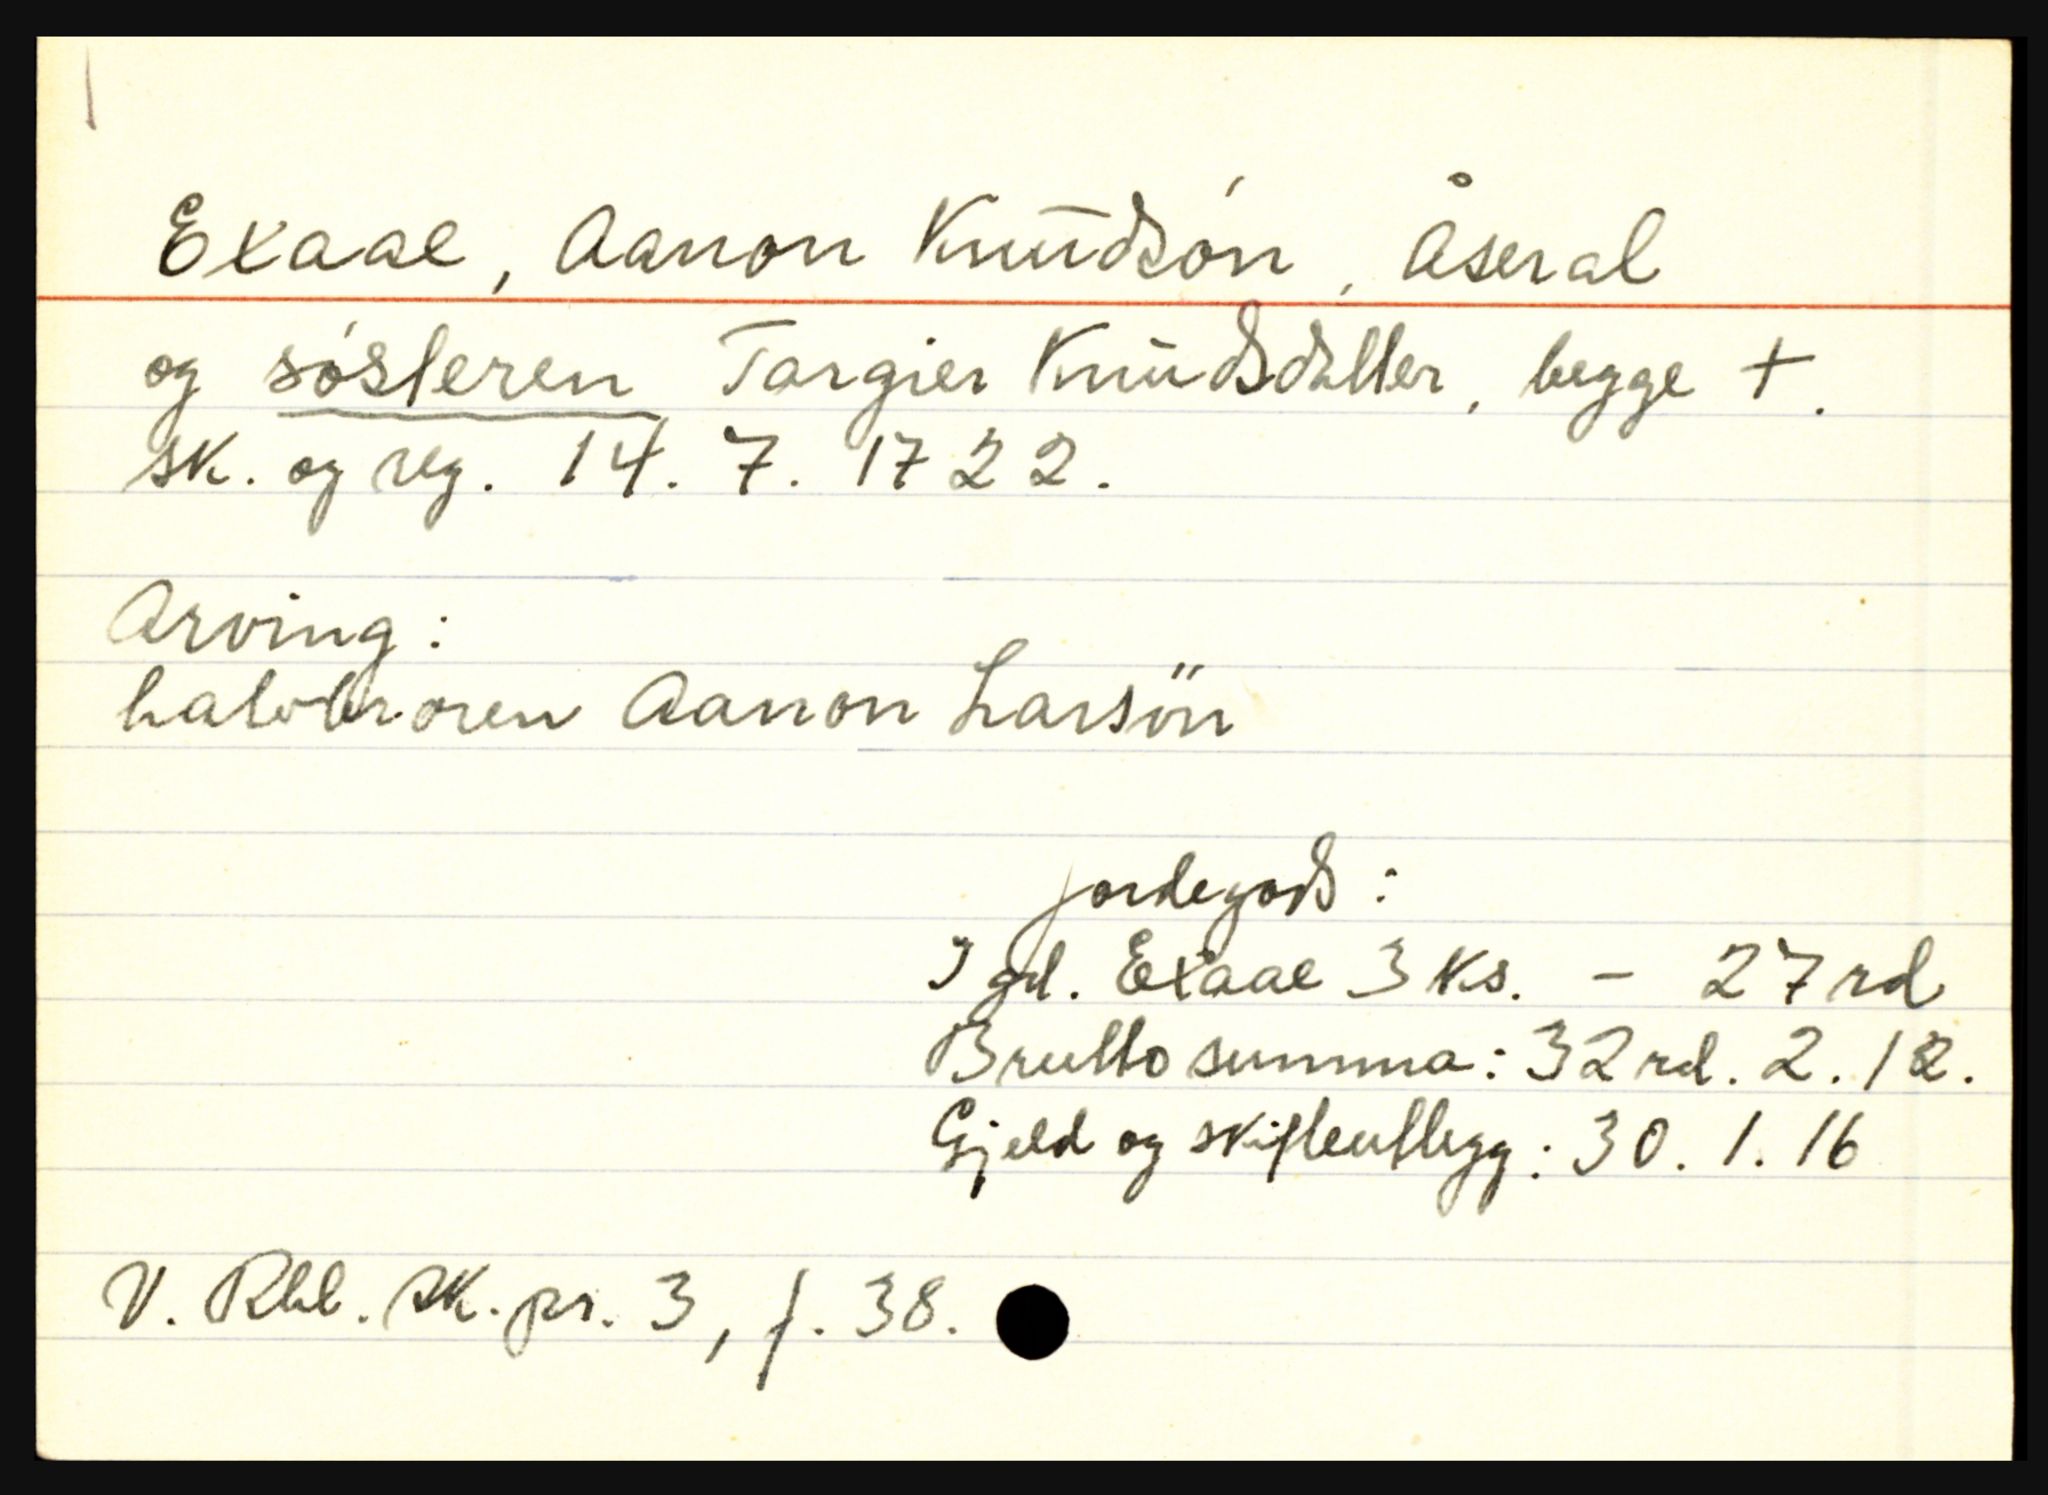 Exaae, Aanon Knudsón, Åseral
og sósteren Targier Knudsdatter, begge +.
sk. og reg. 14. 7. 1722.
Arving:
halvbroren Aanon Larsön
Jordegods:
I gd. Exaae 3 ks. - 27 rd
Brutto summa: 32 rd. 2. 12.
Gjeld og skifteutlegg: 30. 1. 16
V. Rbl. sk. pr. 3, f. 38.